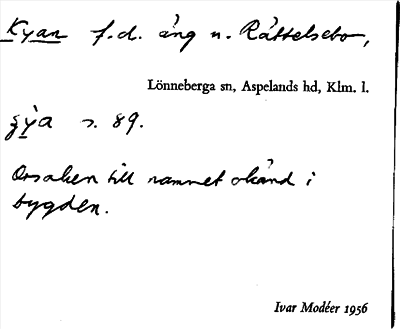 Kyan f.d. äng n. Råttelsebo,
Lönneberga sn, Aspelands hd, Klm. l.
s. 89.
Orsaken till namnet okänd i
bygden.
Ivar Modéer 1956